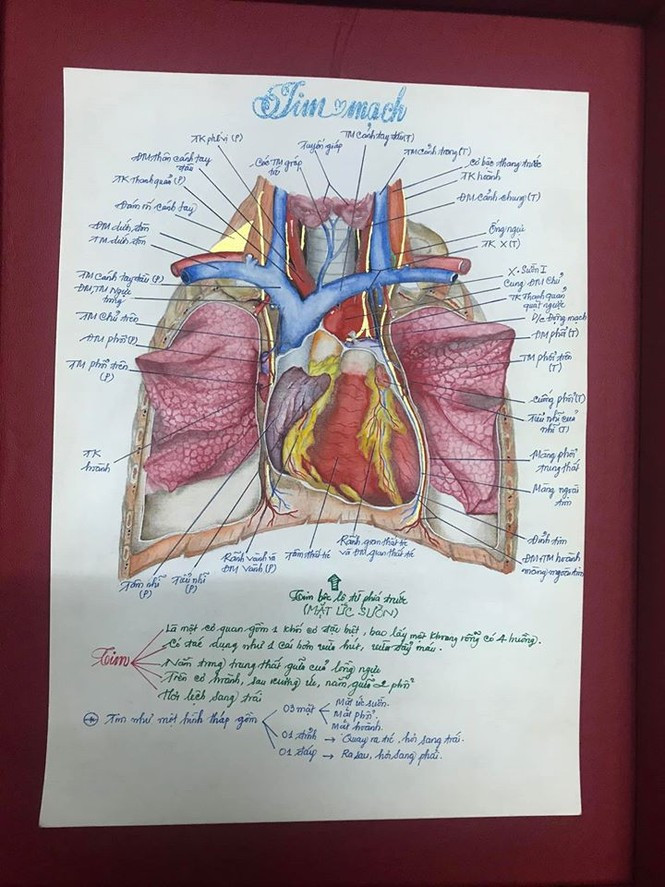 Tim mạch
TK phế vị (P)
ĐM thân cánh tay
đầu
TK thanh quản (P)
Đám rối cánh tay
ĐM dưới đòn
TM dưới đòn
TM cánh tay đầu (P)
ĐM, TM Ngực
trong
TM chủ trên
ĐM phổi (P)
TM phổi trên
(P)
TK
hoành
Các TM giáp
Tuyến giáp
TM cánh tay đầu (T)
TM cảnh trong (T)
Cơ bậc thang trước
TK hoành
ĐM cảnh chung (T)
Ống ngực
TK X (T)
X. Sườn I
Cung ĐM chủ
TK Thanh quản
quặt ngược
D/c Động mạch
ĐM phổi (T)
TM phổi trên
(T)
cuống phổi (T)
Tiểu nhĩ của
nhĩ (T)
Màng phổi
trung thất
Màng ngoài
tim
Đỉnh tim
ĐM, TM hoành
màng ngoài tim
Tâm nhĩ
(P)
Tiểu nhĩ
(P)
Rãnh vành và
ĐM vành (P)
Tâm thất
Rãnh gian thất
và ĐM gian thất
Tim bộc lộ từ phía trước
(MẶT ỨC SƯỜN)
Tim
Là một cơ quan gồm 1 khối cơ đặc biệt, bao lấy một khoang rỗng có 4 buồng.
Có tác dụng như 1 cái bơm vừa hút, vừa đẩy máu.
Nằm trong trung thất giữa của lồng ngực
Trên cơ hoành, sau xương ức, nằm giữa 2 phổi
Hơi lệch sang trái
Tim như một hình tháp gồm
03 mặt
Mặt ức sườn.
Mặt phổi.
Mặt hoành.
01 đỉnh → Quay ra, hơi sang trái.
01 đáy → Ra sau, hơi sang phải.